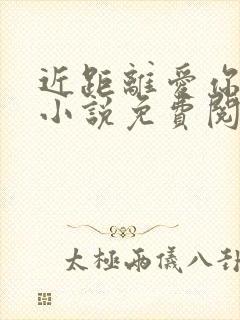 近距離愛你
小說免費閱
太極兩儀八卦